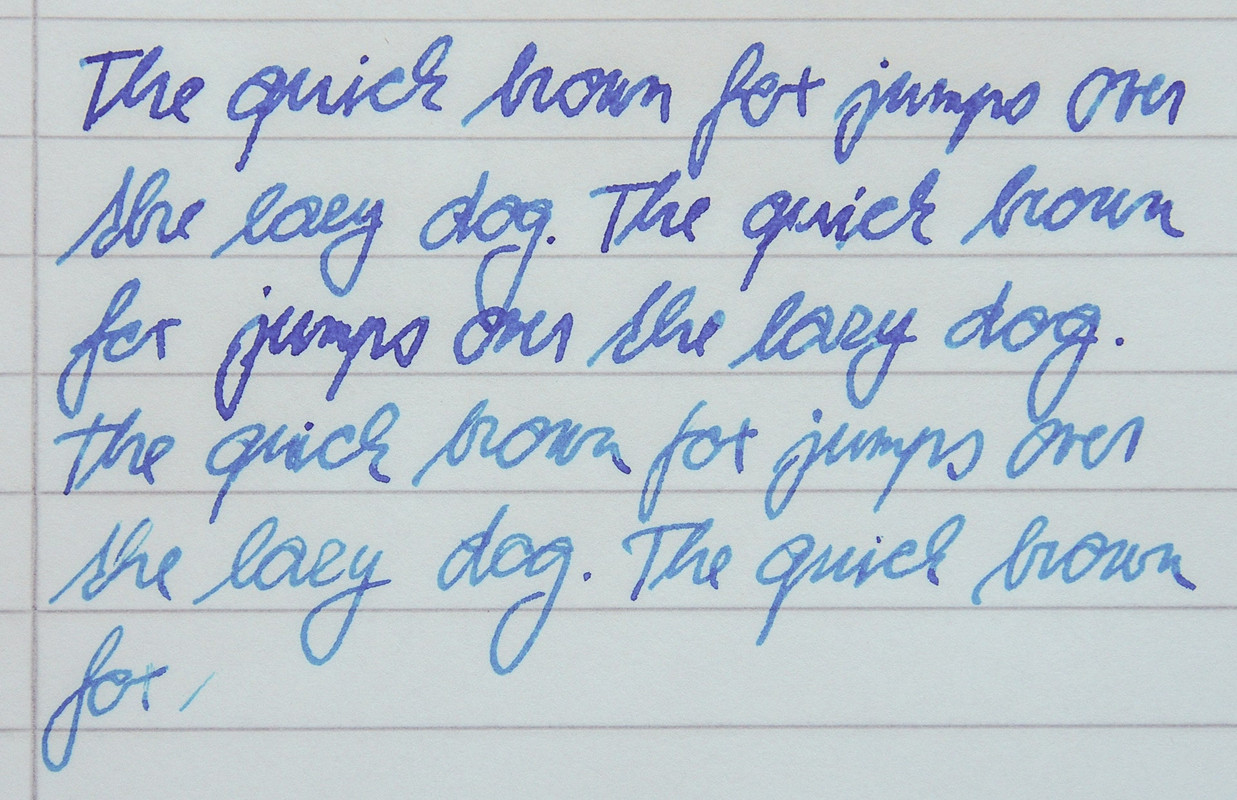 The quick brown fox jumps over
the lazy dog. The quick brown
fox jumps over the lazy dog.
The quick brown fox jumps over
the lazy dog. The quick brown
fox